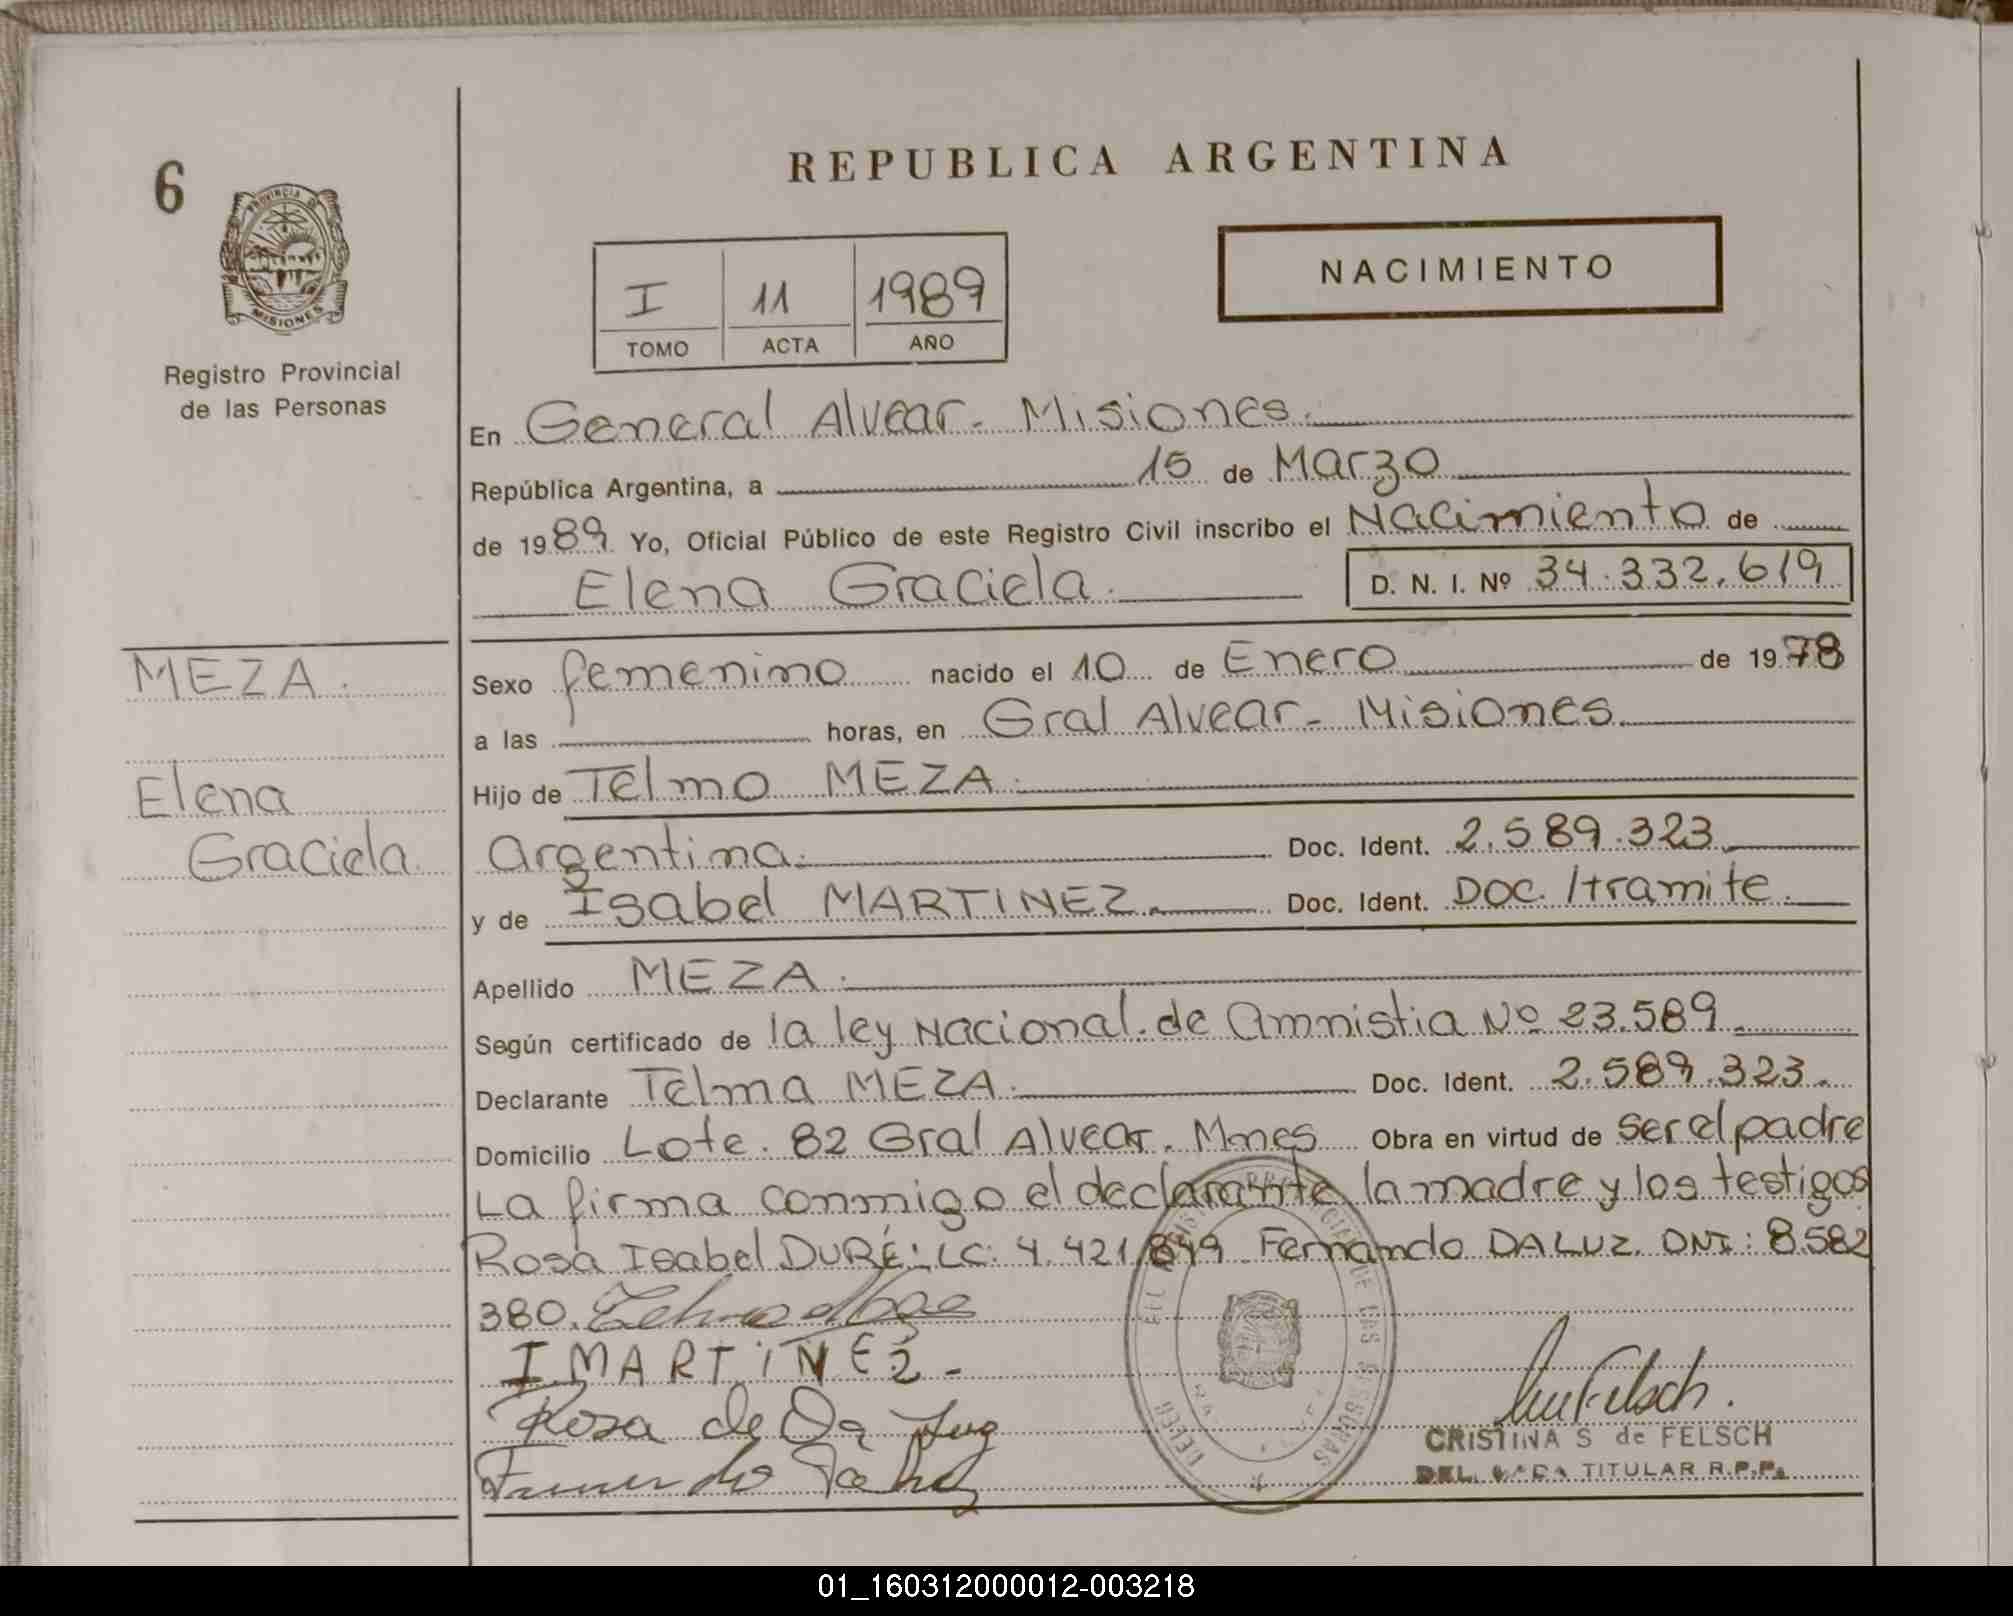 6
PROVINCIA DE
MISIONES
Registro Provincial
de las Personas
REPUBLICA ARGENTINA
I 11 1989
TOMO ACTA AÑO
NACIMIENTO
En General Alvear - Misiones.
República Argentina, a 15 de Marzo
de 1989 Yo, Oficial Público de este Registro Civil inscribo el Nacimiento de
Elena Graciela. D. N. I. Nº 34.332.619
MEZA.
Elena
Graciela.
Sexo femenino nacido el 10 de Enero de 1978
a las horas, en Gral Alvear - Misiones.
Hijo de Telmo MEZA.
Argentina. Doc. Ident. 2.589.323
y de Isabel MARTINEZ. Doc. Ident. Doc. /tramite.
Apellido MEZA.
Según certificado de la ley Nacional de amnistia Nº 23.589
Declarante Telma MEZA. Doc. Ident. 2.589.323.
Domicilio Lote. 82 Gral Alvear. Mnes Obra en virtud de ser el padre
La firma conmigo el declarante la madre y los testigos
Rosa Isabel DURÉ: LC: 4.421.849 Fernando DALUZ. DNI: 8.582
380.
I MARTINEZ -
Rosa de Da Luz
CRISTINA S de FELSCH
TITULAR R.P.P.
01_160312000012-003218